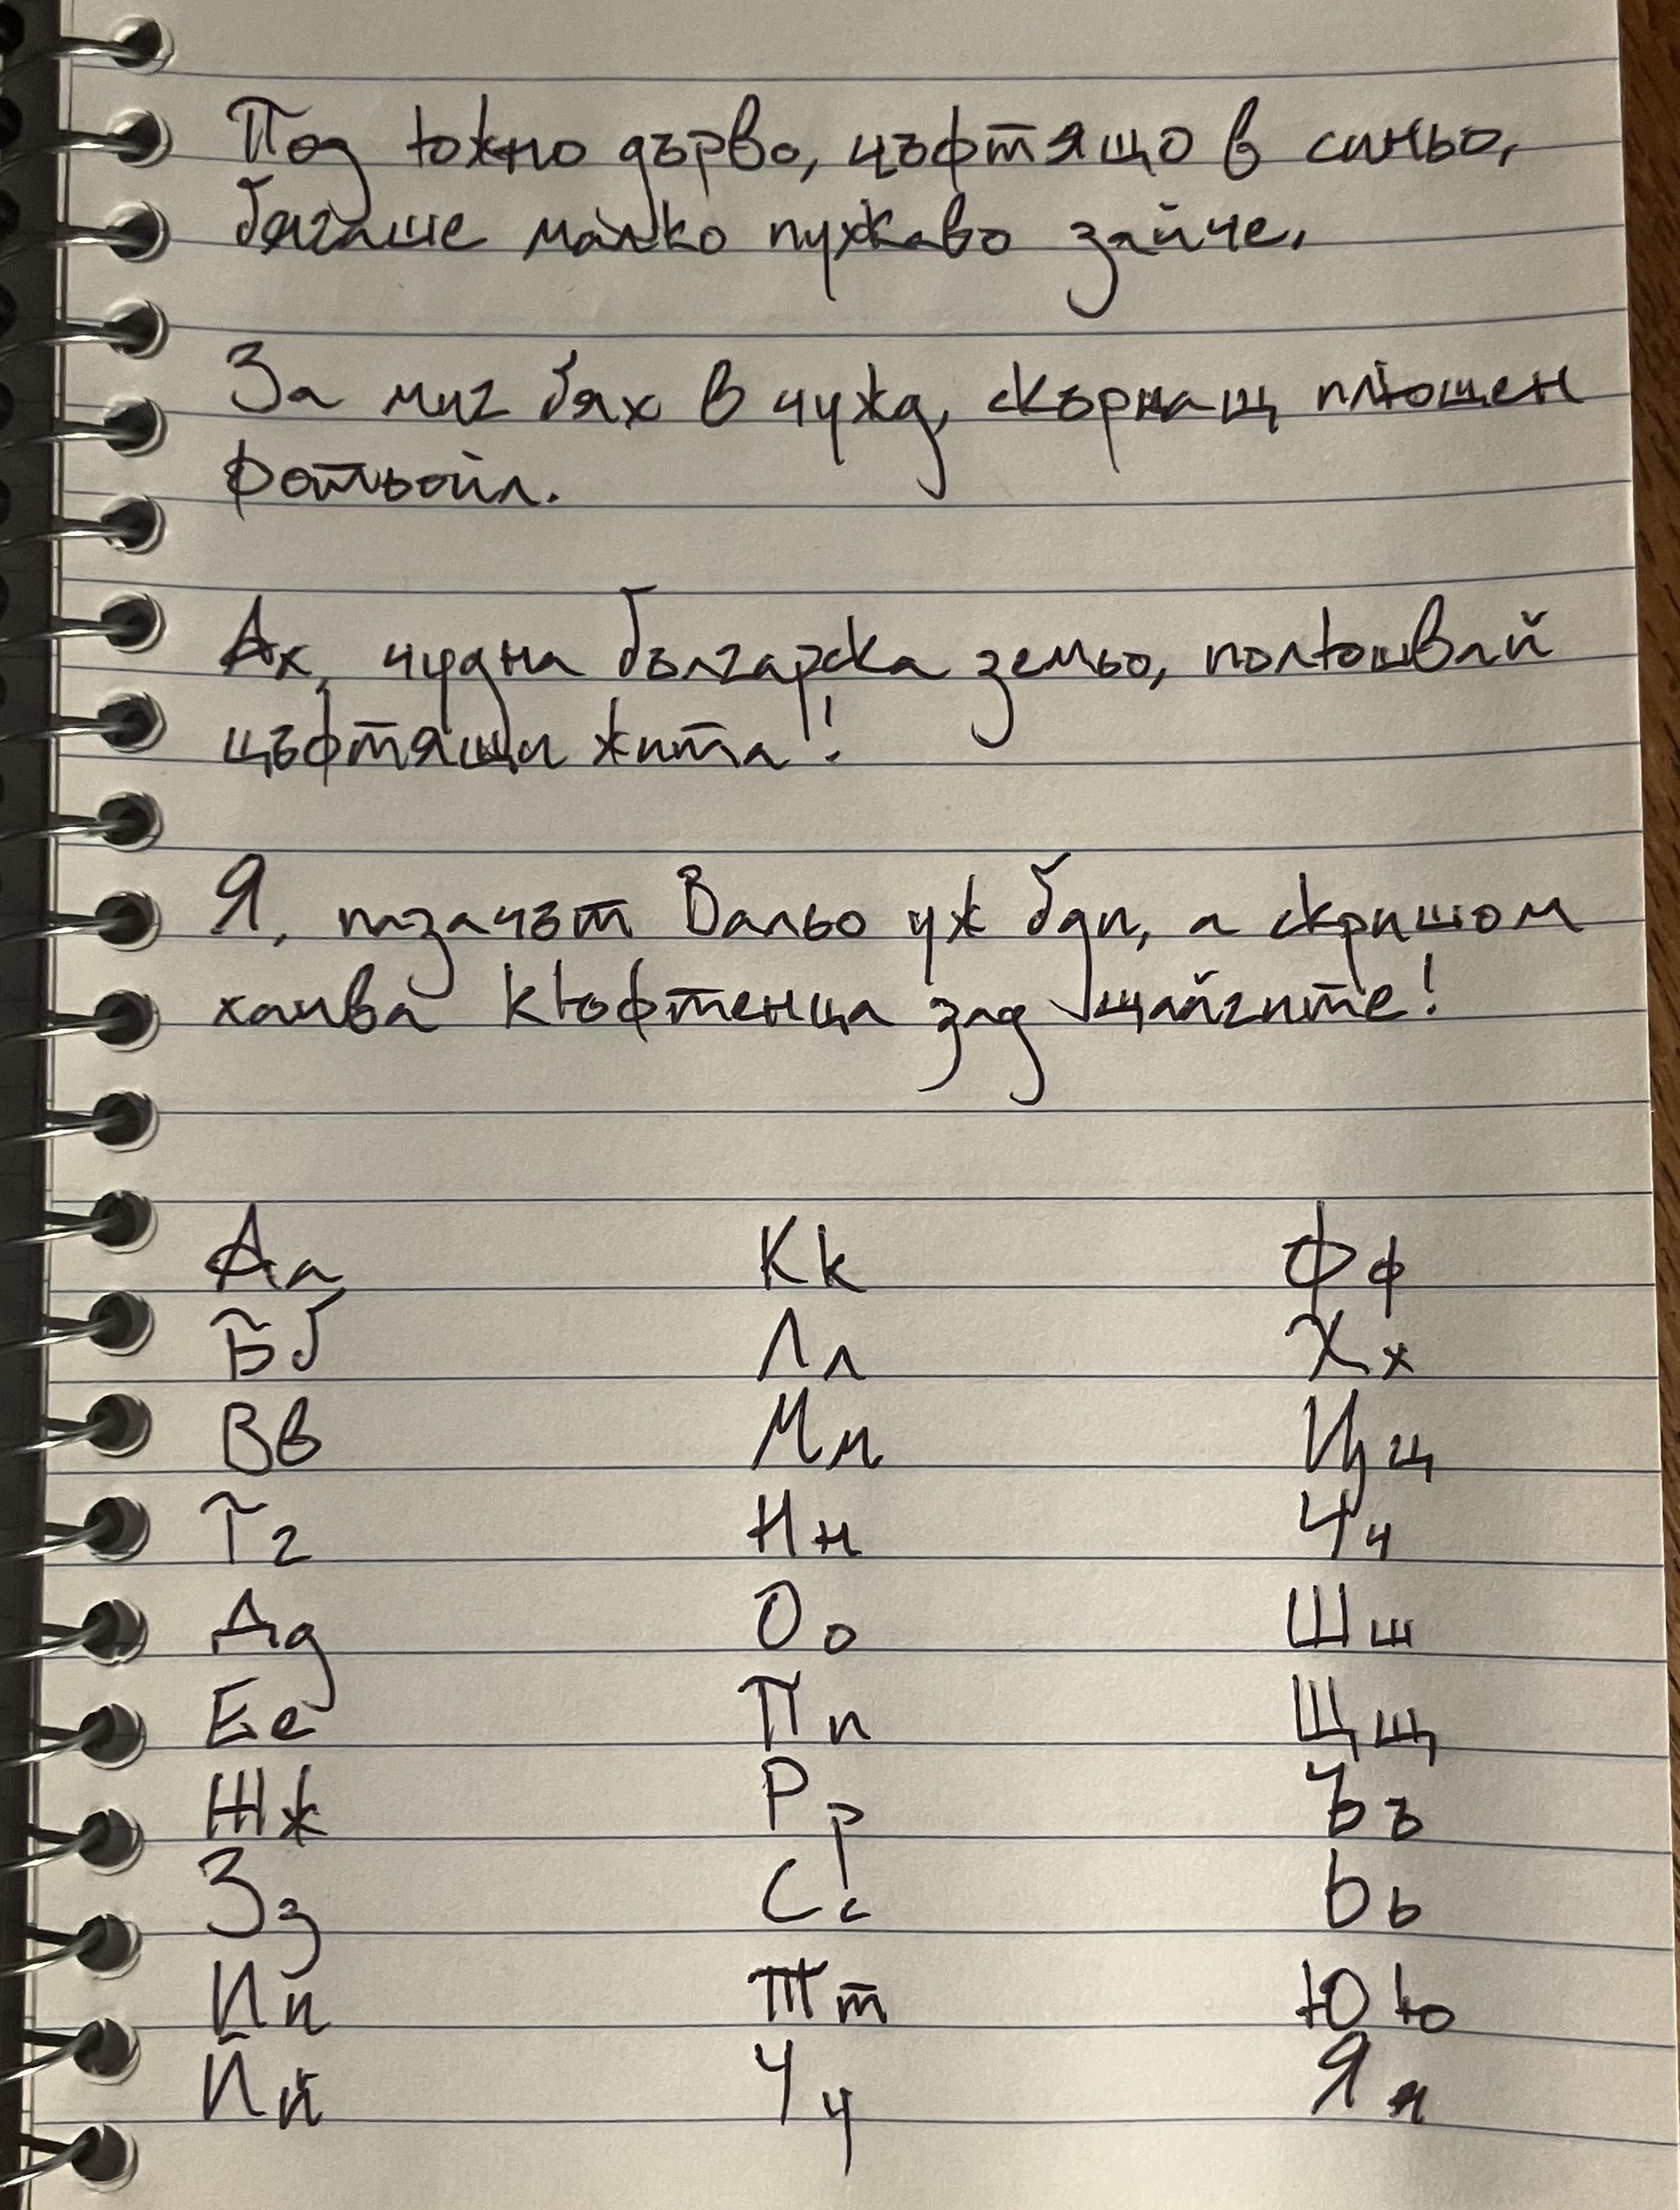 Под южно дърво, цъфтящо в синьо,
бягаше малко пухкаво зайче.
За миг бях в чужд, скърцащ плюшен
фотьойл.
Ах, чудна българска земьо, полюшвай
цъфтящи жита!
Я, пазачът Вальо уж бди, а скришом
хапва кюфтенца зад щайгите!
Аа Кк Фф
Бб Лл Хх
Вв Мм Цц
Гг Нн Чч
Дд Оо Шш
Ее Пп Щщ
Жж Рр Ъъ
Зз Сс Ьь
Ии Тт Юю
Йй Уу Яя